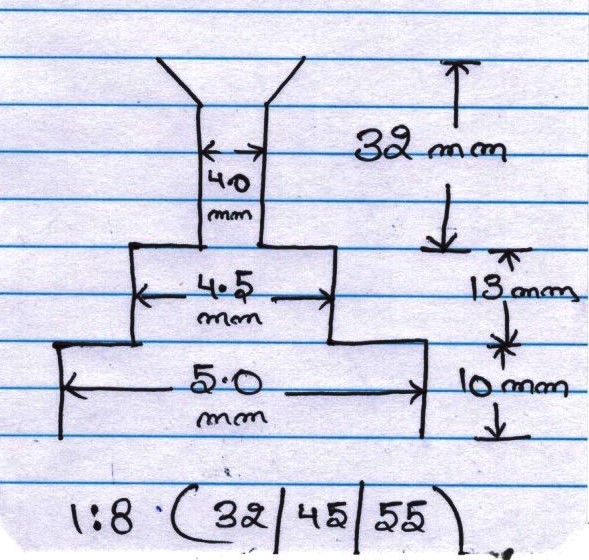 32 mm
4.0
mm
4.5
mm
13 mm
5.0
mm
10 mm
1:8 (32/45/55)